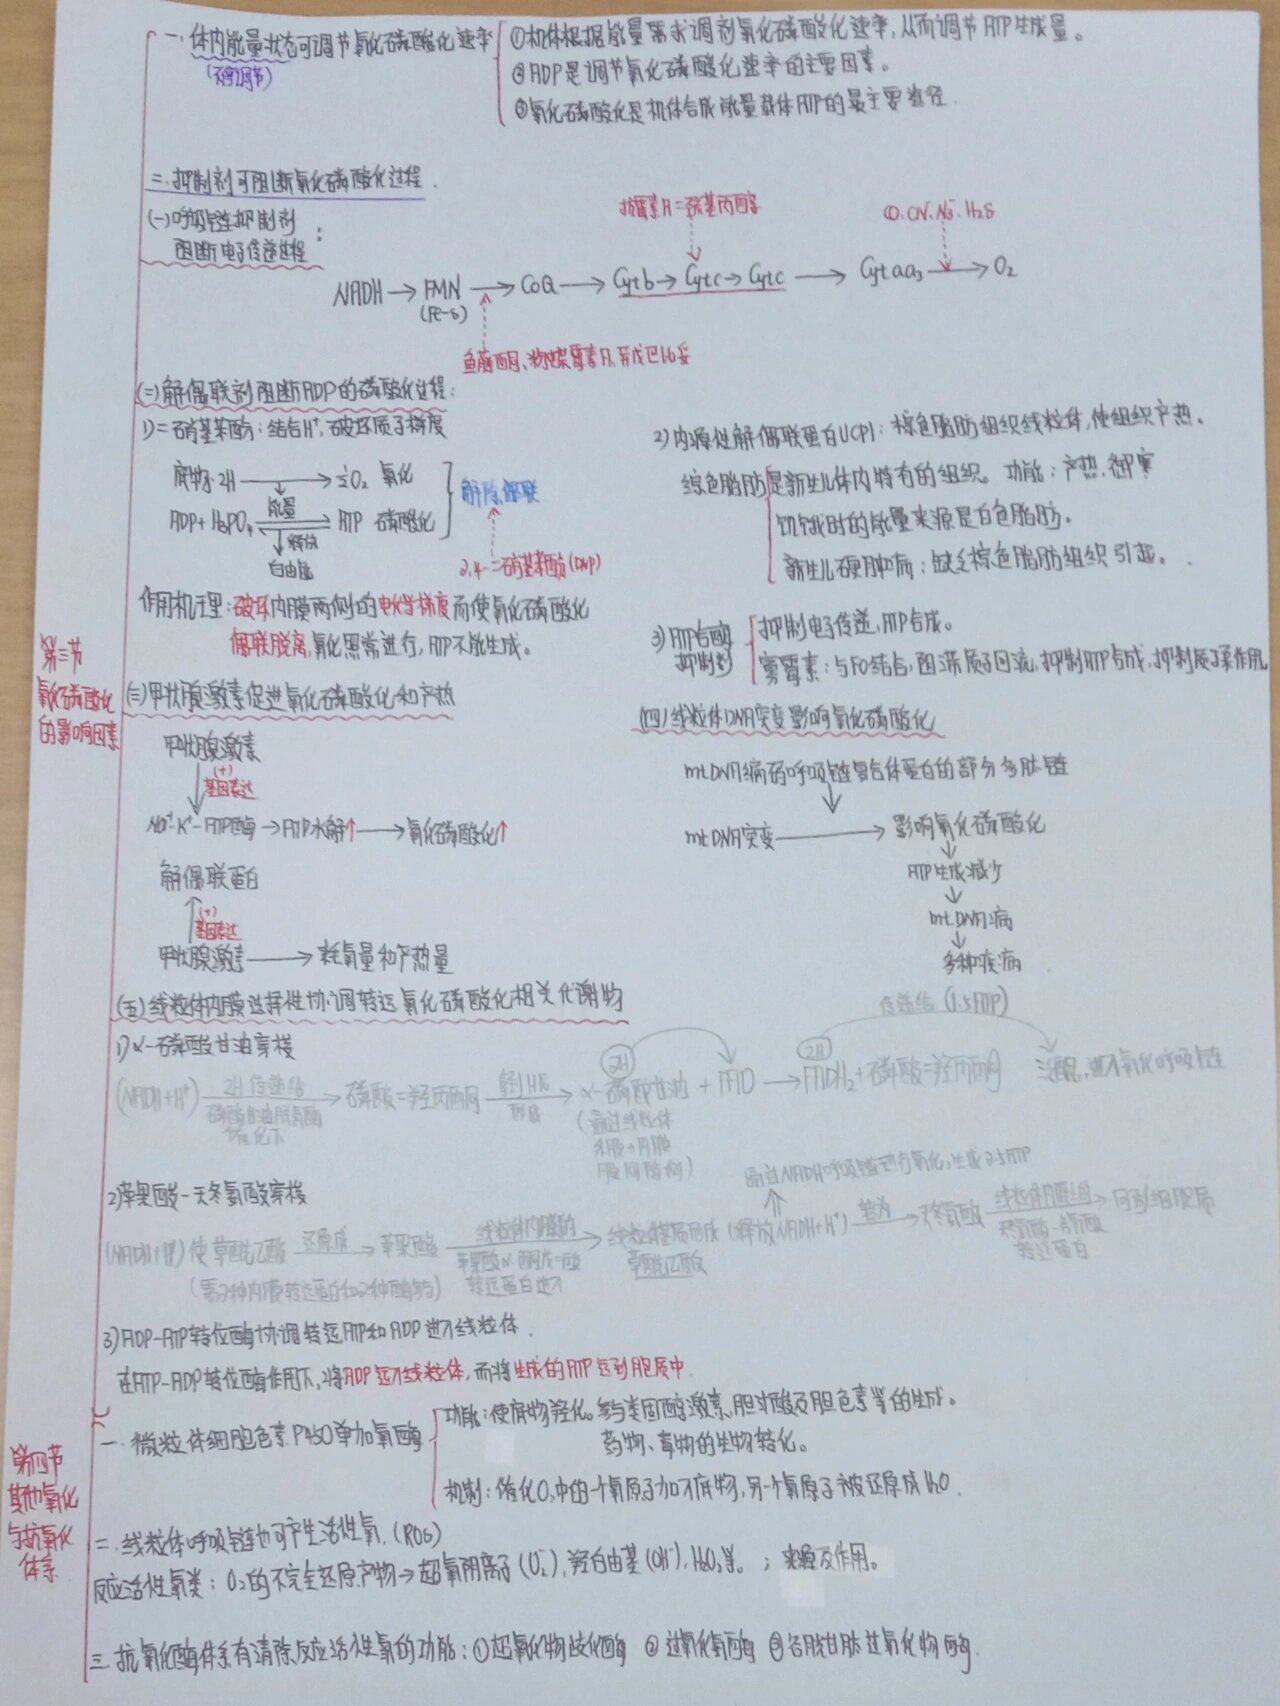 一、体内能量状态可调节氧化磷酸化速率
①机体根据能量需求调剂氧化磷酸化速率,从而调节ATP生成量。
②ADP是调节氧化磷酸化速率的主要因素。
③氧化磷酸化是机体合成能量载体ATP的最主要途径.
二.抑制剂可阻断氧化磷酸化过程.
(一)呼吸链抑制剂
阻断电子传递过程
:
抗霉素A 二巯基丙醇
CO.CN⁻.N₃⁻.H₂S
NADH→FMN→CoQ→Cytb→Cytc→Cytc→Cytaa₃→O₂
(Fe-S)
鱼藤酮、粉蝶霉素A、异戊巴比妥
(二)解偶联剂阻断ADP的磷酸化过程:
1)二硝基苯酚:结合H⁺,破坏质子梯度
底物·2H→½O₂ 氧化
能量
ADP+H₃PO₄ ATP 磷酸化
释放
自由能
解除偶联
2,4-二硝基苯酚(DNP)
作用机理:破坏内膜两侧的电化学梯度而使氧化磷酸化
偶联脱离,氧化照常进行,ATP不能生成。
2)内源性解偶联蛋白UCP1:棕色脂肪组织线粒体,使组织产热。
棕色脂肪是新生儿体内特有的组织。功能:产热.御寒
饥饿时的能量来源是白色脂肪。
新生儿硬肿病:缺乏棕色脂肪组织引起。
3)ATP合酶
抑制剂
抑制电子传递,ATP合成。
寡霉素:与FO结合,阻滞质子回流,抑制ATP合成,抑制质子泵作用
第三节
氧化磷酸化
的影响因素
(三)甲状腺激素促进氧化磷酸化和产热
甲状腺激素
(+)
基因表达
Na⁺-K⁺-ATP酶→ATP水解↑→氧化磷酸化↑
解偶联蛋白
(+)
基因表达
甲状腺激素→耗氧量和产热量
(四)线粒体DNA突变影响氧化磷酸化
mtDNA编码呼吸链复合体蛋白的部分多肽链
mtDNA突变→影响氧化磷酸化
ATP生成减少
mtDNA病
多种疾病
(五)线粒体内膜选择性协调转运氧化磷酸化相关代谢物
1)α-磷酸甘油穿梭
传递给(1.5ATP)
2H
2H
(NADH+H⁺) 2H传递给 磷酸二羟丙酮→α-磷酸甘油+FAD→FADH₂+磷酸二羟丙酮
泛醌,进入氧化呼吸链
磷酸甘油脱氢酶
催化下
(通过线粒体
外膜→内膜
膜间隙侧)
2)苹果酸-天冬氨酸穿梭
通过NADH呼吸链进行氧化,生成2.5ATP
(NADH+H⁺)使草酰乙酸 还原成 苹果酸 线粒体内膜的 线粒体基质形成(释放NADH+H⁺) 转为 天冬氨酸 线粒体内膜上的 回到细胞质
苹果酸α-酮戊二酸
转运蛋白进入
草酰乙酸
天冬氨酸-谷氨酸
转运蛋白
(需2种内膜转运蛋白和2种酶参与)
3)ADP-ATP转位酶协调转运ATP和ADP进入线粒体.
在ATP-ADP转位酶作用下,将ADP运入线粒体,而将生成的ATP运到胞质中.
第四节
其他氧化
与抗氧化
体系
一.微粒体细胞色素P450单加氧酶
功能:使底物羟化。参与类固醇激素,胆汁酸及胆色素等的生成。
药物、毒物的生物转化。
机制:催化O₂中的一个氧原子加入底物,另一个氧原子被还原成H₂O.
二.线粒体呼吸链也可产生活性氧.(ROS)
反应活性氧类:O₂的不完全还原产物→超氧阴离子(O₂⁻),羟自由基(OH⁻),H₂O₂等。;来源及作用。
三.抗氧化酶体系有清除反应活性氧的功能:①超氧化物歧化酶 ②过氧化氢酶 ③谷胱甘肽过氧化物酶.